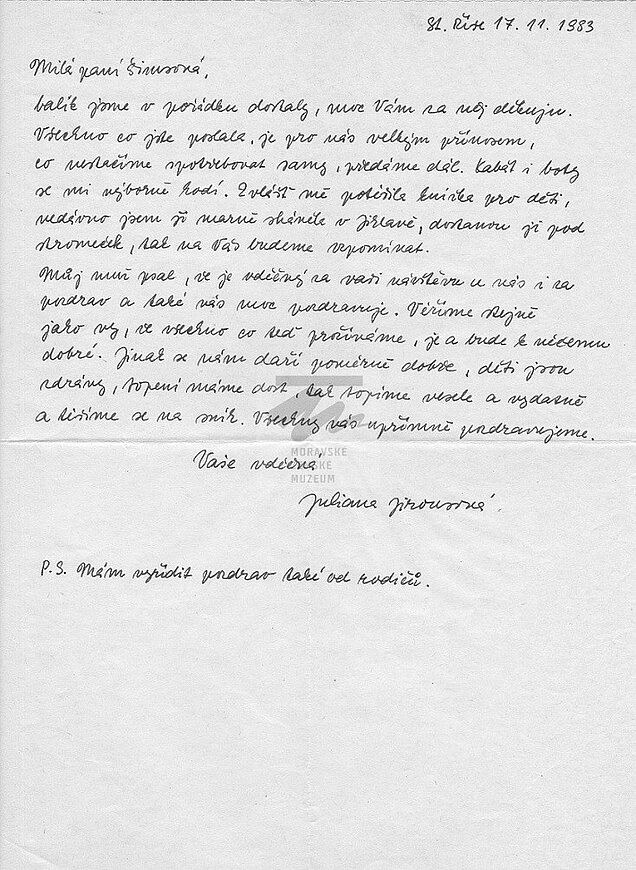 St. Říše 17. 11. 1983
Milá paní Šimsová,
balík jsme v pořádku dostaly, moc Vám za něj děkuju.
Všechno co jste poslala, je pro nás velkým přínosem,
co nestačíme spotřebovat samy, předáme dál. Kabát i boty
se mi výborně hodí. Zvlášť mě potěšila knížka pro děti,
nedávno jsem ji marně sháněla v Jihlavě, dostanou ji pod
stromeček, tak na Vás budeme vzpomínat.
Můj muž psal, že je vděčný za vaši návštěvu u nás i za
pozdrav a také vás moc pozdravuje. Věříme stejně
jako vy, že všechno co teď prožíváme, je a bude k něčemu
dobré. Jinak se nám daří poměrně dobře, děti jsou
zdrávy, topení máme dost, tak topíme vesele a vydatně
a těšíme se na sníh. Všechny vás upřímně pozdravujeme.
Vaše vděčná
Juliana Jirousová.
P.S. Mám vyřídit pozdrav také od rodičů.
MORAVSKÉ
ZEMSKÉ
MUZEUM